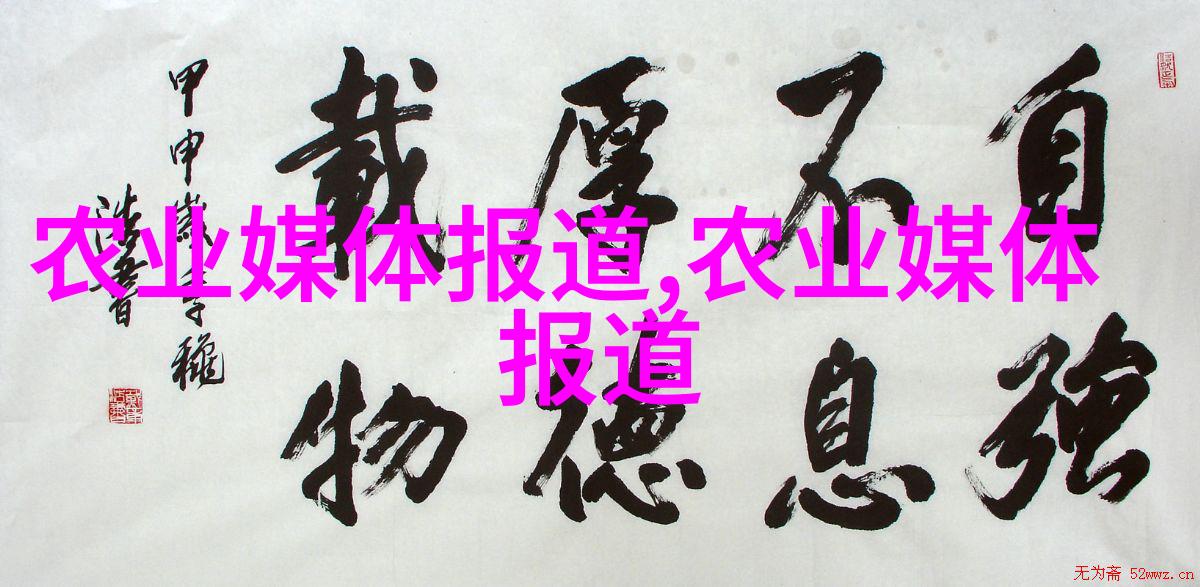 自强
不息
厚德
载物
甲申岁
农业媒体报道,农业媒体
报道
无为斋 52wwz.cn